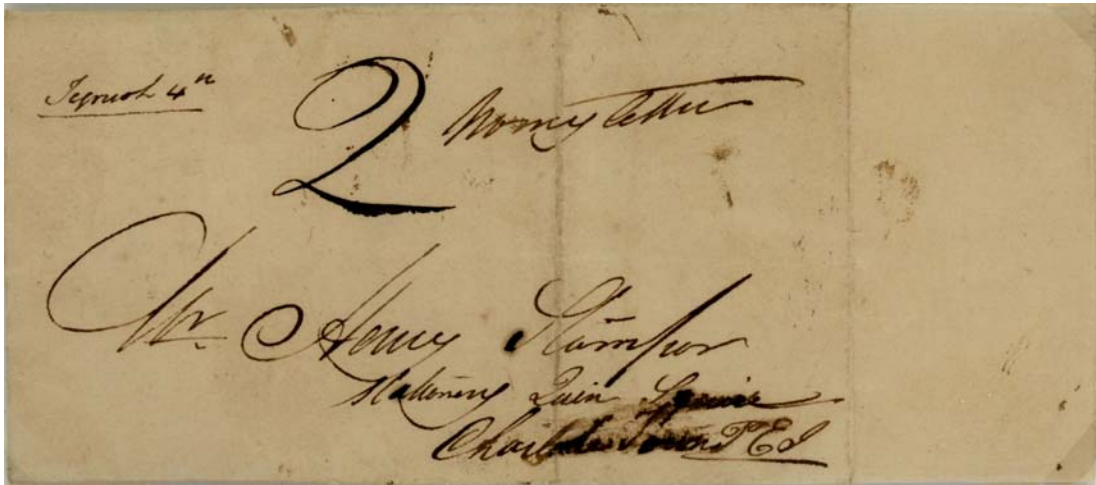 4th
2 Money letter
Mr. Henry Stamper
Stationery Quein Squair
Charlotte Town P E I